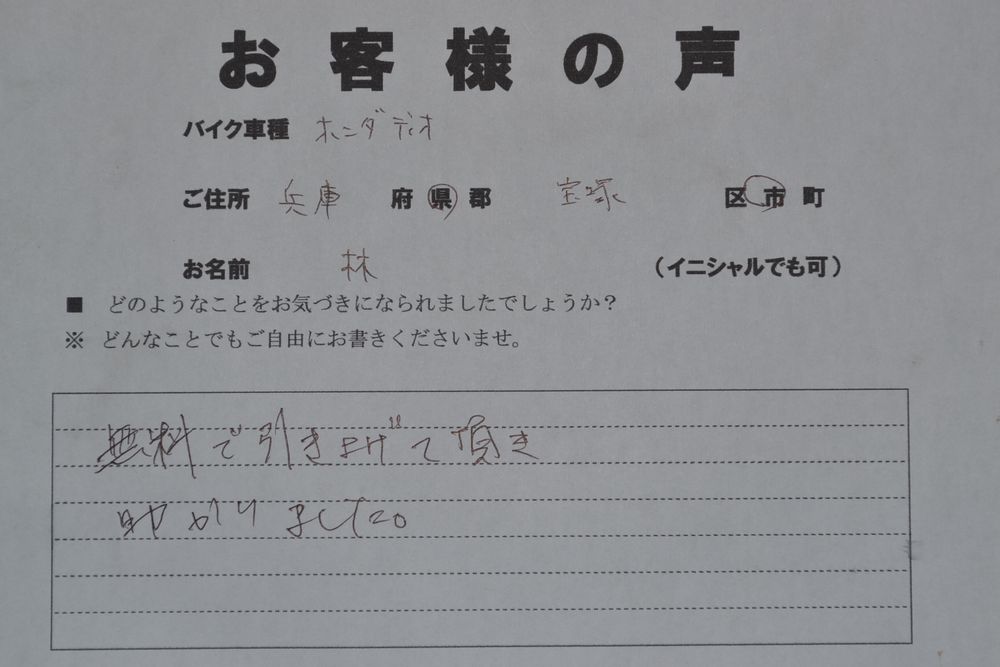 お客様の声
バイク車種 ホンダ ディオ
ご住所 兵庫 府 県 郡 宝塚 区 市 町
お名前 林 （イニシャルでも可）
■ どのようなことをお気づきになられましたでしょうか？
※ どんなことでもご自由にお書きくださいませ。
無料で引き上げて頂き
助かりました。